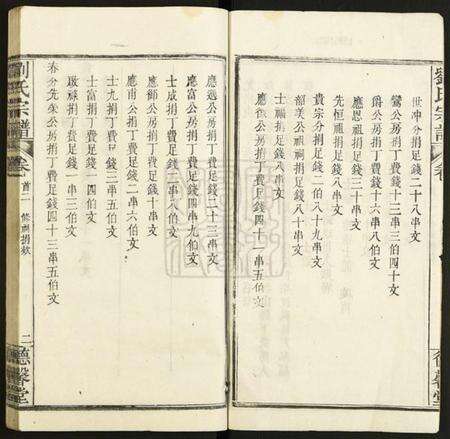 劉氏宗譜
卷
德馨堂
世冲分捐足錢二十八串文
鸞公房捐丁費錢十二串三伯四十文
爵公房捐丁費足錢十六串八伯文
應恩祖捐足錢八串文
先恒祖捐足錢八串文
貴宗分捐足錢二伯八十九串文
韶美公祖捐足錢八十串文
士 祖捐足錢八串文
應 公房捐丁費足錢四十一串五伯文
應選公房捐丁費足錢二十三串文
士 公房捐丁費足錢四串九伯文
士成捐丁費足錢八伯文
應師公房捐丁費足錢十串文
應甫公捐丁費足錢二串六伯文
士九捐丁費足錢二串五伯文
士富捐丁費足錢一四伯文
啟祿捐丁費足錢一串二伯文
春分先 公房捐丁費足錢四十三串五伯文
劉氏宗譜
卷首二
修祠捐欵
二
德馨堂